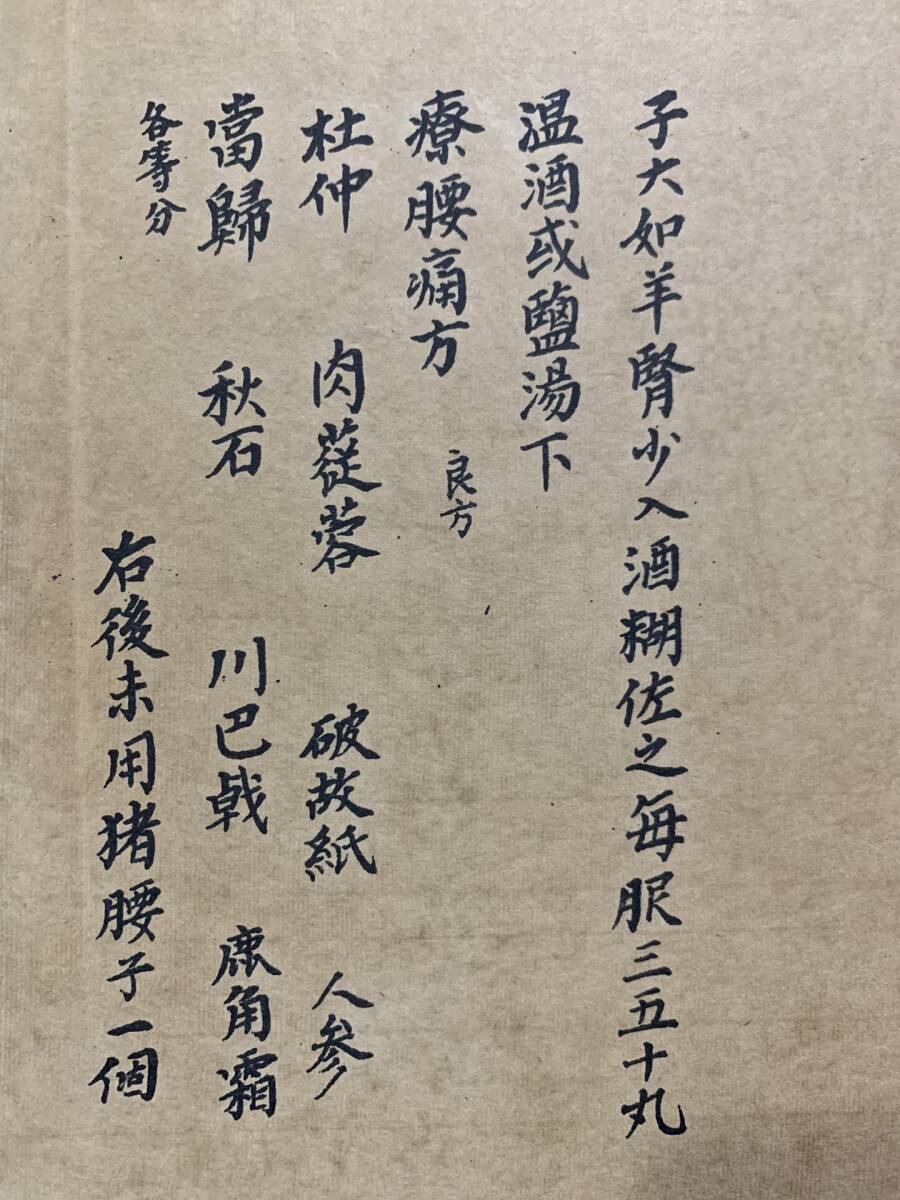 子大如羊腎少入酒糊佐之每服三五十丸
温酒或鹽湯下
療腰痛方 良方
杜仲 肉蓯蓉 破故紙 人參
當歸 秋石 川巴戟 鹿角霜
各等分
右後末用猪腰子一個